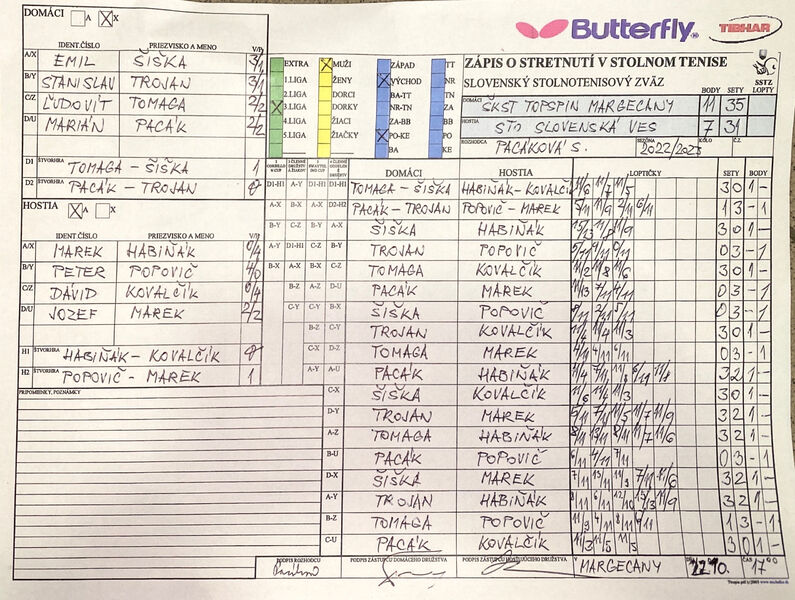 DOMÁCI A X X
Butterfly
TIBHAR
IDENT.ČÍSLO PRIEZVISKO A MENO V/P
A/X EMIL ŠIŠKA 3/1
B/Y STANISLAV TROJAN 3/1
C/Z ĽUDOVÍT TOMAGA 2/2
D/U MARIÁN PACÁK 2/2
D1 ŠTVORHRA TOMAGA - ŠIŠKA 1
D2 ŠTVORHRA PACÁK - TROJAN 0
EXTRA
1.LIGA
2.LIGA
3.LIGA
4.LIGA
5.LIGA
MUŽI
ŽENY
DORCI
DORKY
ŽIACI
ŽIAČKY
ZÁPAD
VÝCHOD
BA-TT
NR-TN
ZA-BB
PO-KE
BA
TT
NR
TN
ZA
BB
PO
KE
ZÁPIS O STRETNUTÍ V STOLNOM TENISE
SLOVENSKÝ STOLNOTENISOVÝ ZVÄZ
SSTZ
BODY SETY LOPTY
DOMÁCI ŠKST TOPSPIN MARGECANY 11 35
HOSTIA STO SLOVENSKÁ VES 7 31
ROZHODCA PACÁKOVÁ S. SEZÓNA 2022/2023 KOLO Č.
HOSTIA X A X
IDENT.ČÍSLO PRIEZVISKO A MENO V/P
A/X MAREK HABIŇÁK 0/4
B/Y PETER POPOVIČ 4/0
C/Z DÁVID KOVALČÍK 0/4
D/U JOZEF MAREK 2/2
H1 ŠTVORHRA HABIŇÁK - KOVALČÍK 0
H2 ŠTVORHRA POPOVIČ - MAREK 1
PRIPOMIENKY, POZNÁMKY
DOMÁCI HOSTIA LOPTIČKY SETY BODY
D1-H1 TOMAGA - ŠIŠKA HABIŇÁK - KOVALČÍK 11/6 11/7 11/5 3 0 1 -
D2-H2 PACÁK - TROJAN POPOVIČ - MAREK 5/11 11/9 2/11 6/11 1 3 - 1
A-X ŠIŠKA HABIŇÁK 15/13 11/8 11/9 3 0 1 -
B-Y TROJAN POPOVIČ 5/11 9/11 0/11 0 3 - 1
C-Z TOMAGA KOVALČÍK 11/2 11/8 11/6 3 0 1 -
D-U PACÁK MAREK 11/13 7/11 4/11 0 3 - 1
A-Y ŠIŠKA POPOVIČ 8/11 2/11 5/11 0 3 - 1
B-Z TROJAN KOVALČÍK 11/4 11/4 11/3 3 0 1 -
MAREK 0 3 - 1
A-U PACÁK HABIŇÁK 3 2 1 -
C-X ŠIŠKA KOVALČÍK 11/6 11/4 11/3 3 0 1 -
D-Y TROJAN MAREK 3 2 1 -
A-Z TOMAGA HABIŇÁK 3 2 1 -
B-U PACÁK POPOVIČ 6/11 4/11 7/11 0 3 - 1
D-X ŠIŠKA MAREK 3 2 1 -
A-Y TROJAN HABIŇÁK 3 2 1 -
B-Z TOMAGA POPOVIČ 1 3 - 1
C-U PACÁK KOVALČÍK 11/3 11/5 11/5 3 0 1 -
PODPIS ROZHODCU PODPIS ZÁSTUPCU DOMÁCEHO DRUŽSTVA PODPIS ZÁSTUPCU HOSŤUJÚCEHO DRUŽSTVA MARGECANY 22.10. ČAS 17⁰⁰